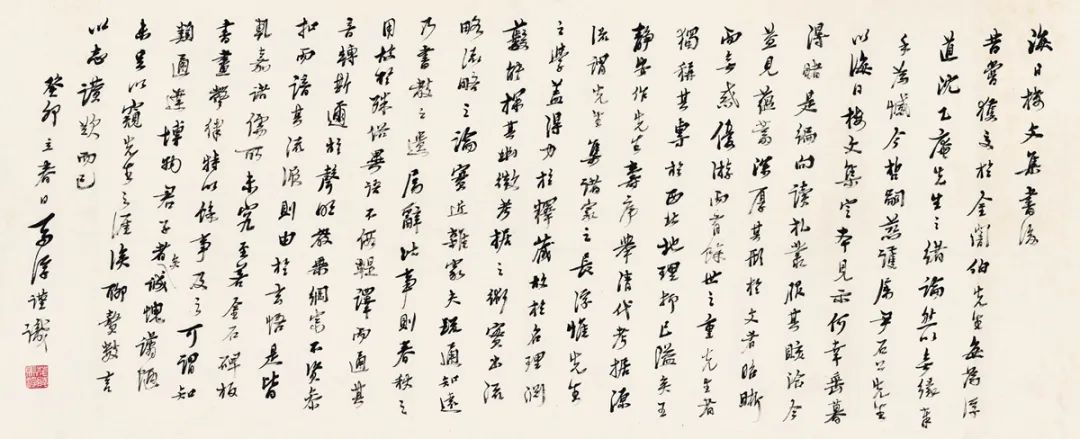 海日樓文集書後
昔嘗獲交於金闇伯先生每為浮
道沈乙庵先生之緒論然以無緣奉
手為憾今哲嗣慈護屬尹石公先生
以海日樓文集定本見示何幸垂暮
得睹是編向讀札叢服其賅洽今
益見蘊蓄深厚其形於文者昭晰
而無惑優游而有餘世之重先生者
獨稱其專於西北地理抑已隘矣王
靜安作先生壽序舉清代考據源
流謂先生集諸家之長浮惟先生
之學蓋得力於釋藏故於名理淵
藪能探其幽微考據之術實出流
略流略之論實近雜家夫疏通知遠
乃書教之遺屬辭比事則春秋之
用故能殊俗異語不假鞮譯而通其
音轉斯邇於聲明教乘綱宗不資參
扣而語其流派則由於玄悟是皆
乾嘉諸儒所未究至若金石碑板
書畫聲律特以餘事及之可謂知
類通達博物君子者矣誠愧譾陋
未足以窺先生之涯涘聊贅數言
以志讚歎而已
癸卯立春日馬浮謹識